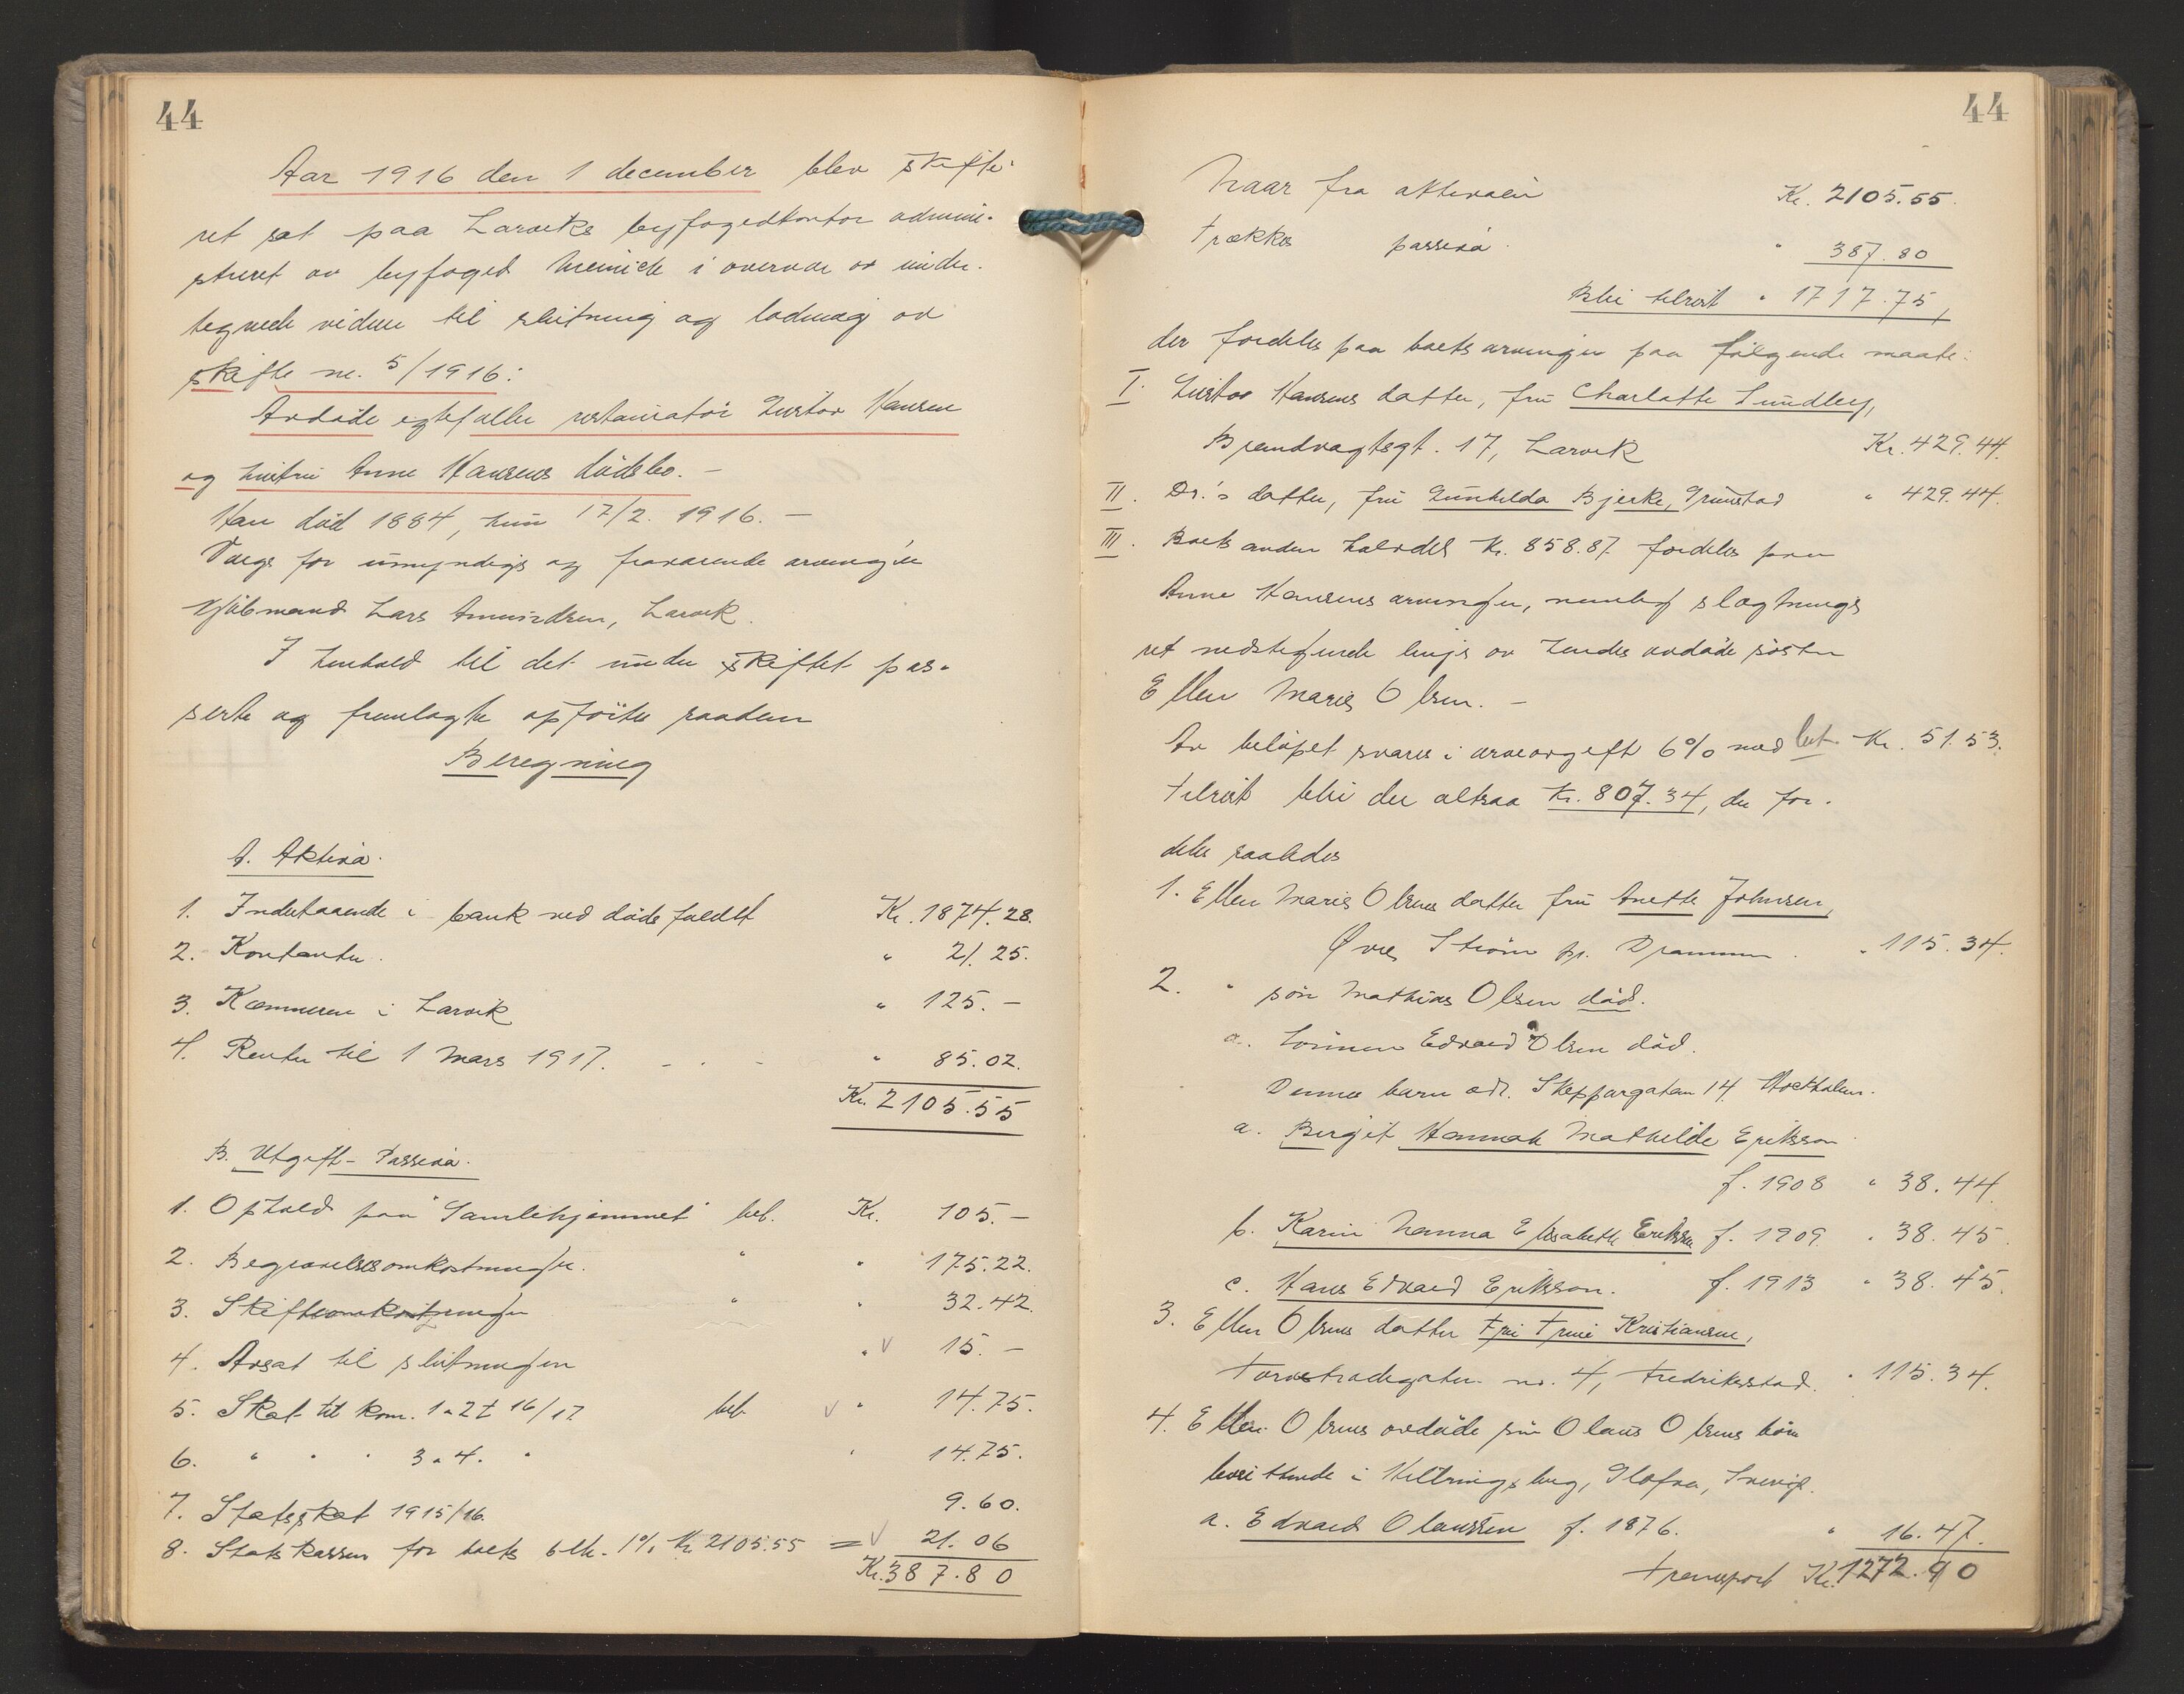 44
Aar 1916 den 1 december blev skifte-
ret sat paa Larviks byfogedkontor admini-
streret av byfoged Meinich i overvær av under-
tegnede vidner til slutning og lodning av
skifte nr. 5/1916:
Avdøde egtefæller restauratør Gustav Hansen
og hustru Anne Hansens dødsbo. -
Han død 1884, hun 17/2. 1916. -
Verge for umyndige og fraværende arvinger
Kjøbmand Lars Amundsen, Larvik.
I henhold til det under skiftet pas-
serte og fremlagte opføres saadan
Beregning
A. Aktiva.
1. Indestaaende i bank ved dødsfaldet Kr. 1874.28.
2. Kontanter. " 21.25.
3. Kæmneren i Larvik " 125.-
4. Renter til 1 mars 1917. " 85.02.
Kr. 2105.55
B. Utgift - Passiva.
1. Ophold paa "Samlehjemmet" bet. Kr. 105.-
2. Begravelsesomkostninger. " " 175.22.
3. Skifteomkostninger " " 32.42.
4. Avsat til slutningen " 15.-
5. Skat til kom. 1 & 2 t 16/17 bet. " 14.75.
6. " " " 3 & 4. " " 14.75.
7. Statsskat 1915/16. 9.60.
8. Statskassen for boets beh. 1% Kr. 2105.55 = 21.06
Kr. 387.80
44
Naar fra aktivaen Kr. 2105.55.
trækkes passiva. " 387.80
Blir tilrest " 1717.75,
der fordeles paa boets arvinger paa følgende maate:
I. Gustav Hansens datter, fru Charlotte Lundberg,
Brandvagtsgt. 17, Larvik Kr. 429.44.
II. Do.'s datter, fru Gunhilda Bjerke, Grimstad " 429.44.
III. Boets anden halvdel Kr. 858.87 fordeles paa
Anne Hansens arvinger, nemlig slægtninge i
ret nedstigende linje av hendes avdøde søster
Ellen Marie Olsen. -
Av beløpet svares i arveavgift 6% med Kr. 51.53.
tilrest blir der altsaa Kr. 807.34, der for-
deles saaledes
1. Ellen Marie Olsens datter fru Anette Johnsen,
Øvre Strøm pr. Drammen. " 115.34.
2. " søn Mathias Olsen død.
a. Sønnen Edvard Olsen død.
Dennes barn adr. Skeppargatan 14 Stockholm.
a. Birgit Hannah Mathilde Eriksson
f. 1908 " 38.44.
b. Karin Nanna Elisabeth Eriksson f. 1909. " 38.45.
c. Hans Edvard Eriksson. f. 1913 " 38.45.
3. Ellen Olsens datter Fru Trine Kristiansen,
Torvestradegaten no. 4, Fredriksstad. " 115.34.
4. Ellen Olsens avdøde søn Olaus Olsens børn
bosittende i Glafva, Sverige.
a. Edvard Olaussen f. 1876. " 16.47.
Transport Kr. 1272.90